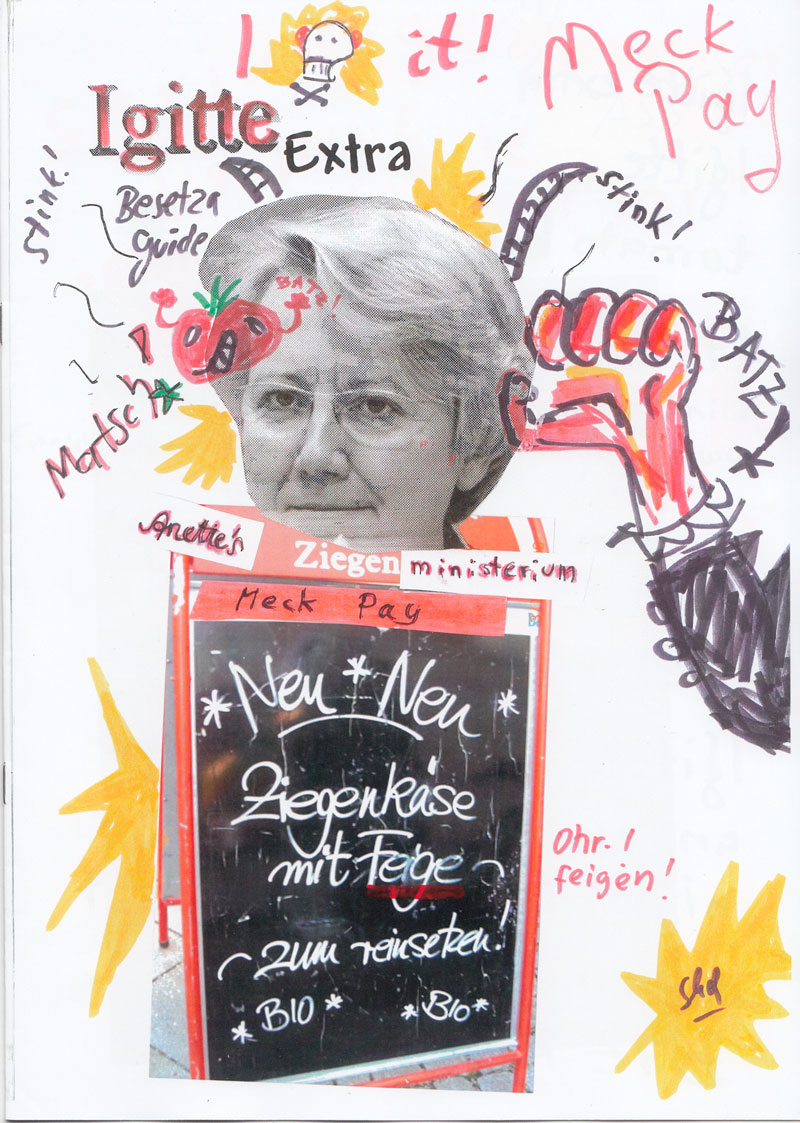 I it! Meck
Pay
Igitte
Extra
stink!
Besetza
Guide
stink!
BATZ!
BATZ!
Martsch!
Anette's
Ziegen
ministerium
Meck Pay
*Neu * Neu *
Ziegenkäse
mit Feige
zum reinsetzen!
* BIO * * BIO *
Ohr- /
feigen!